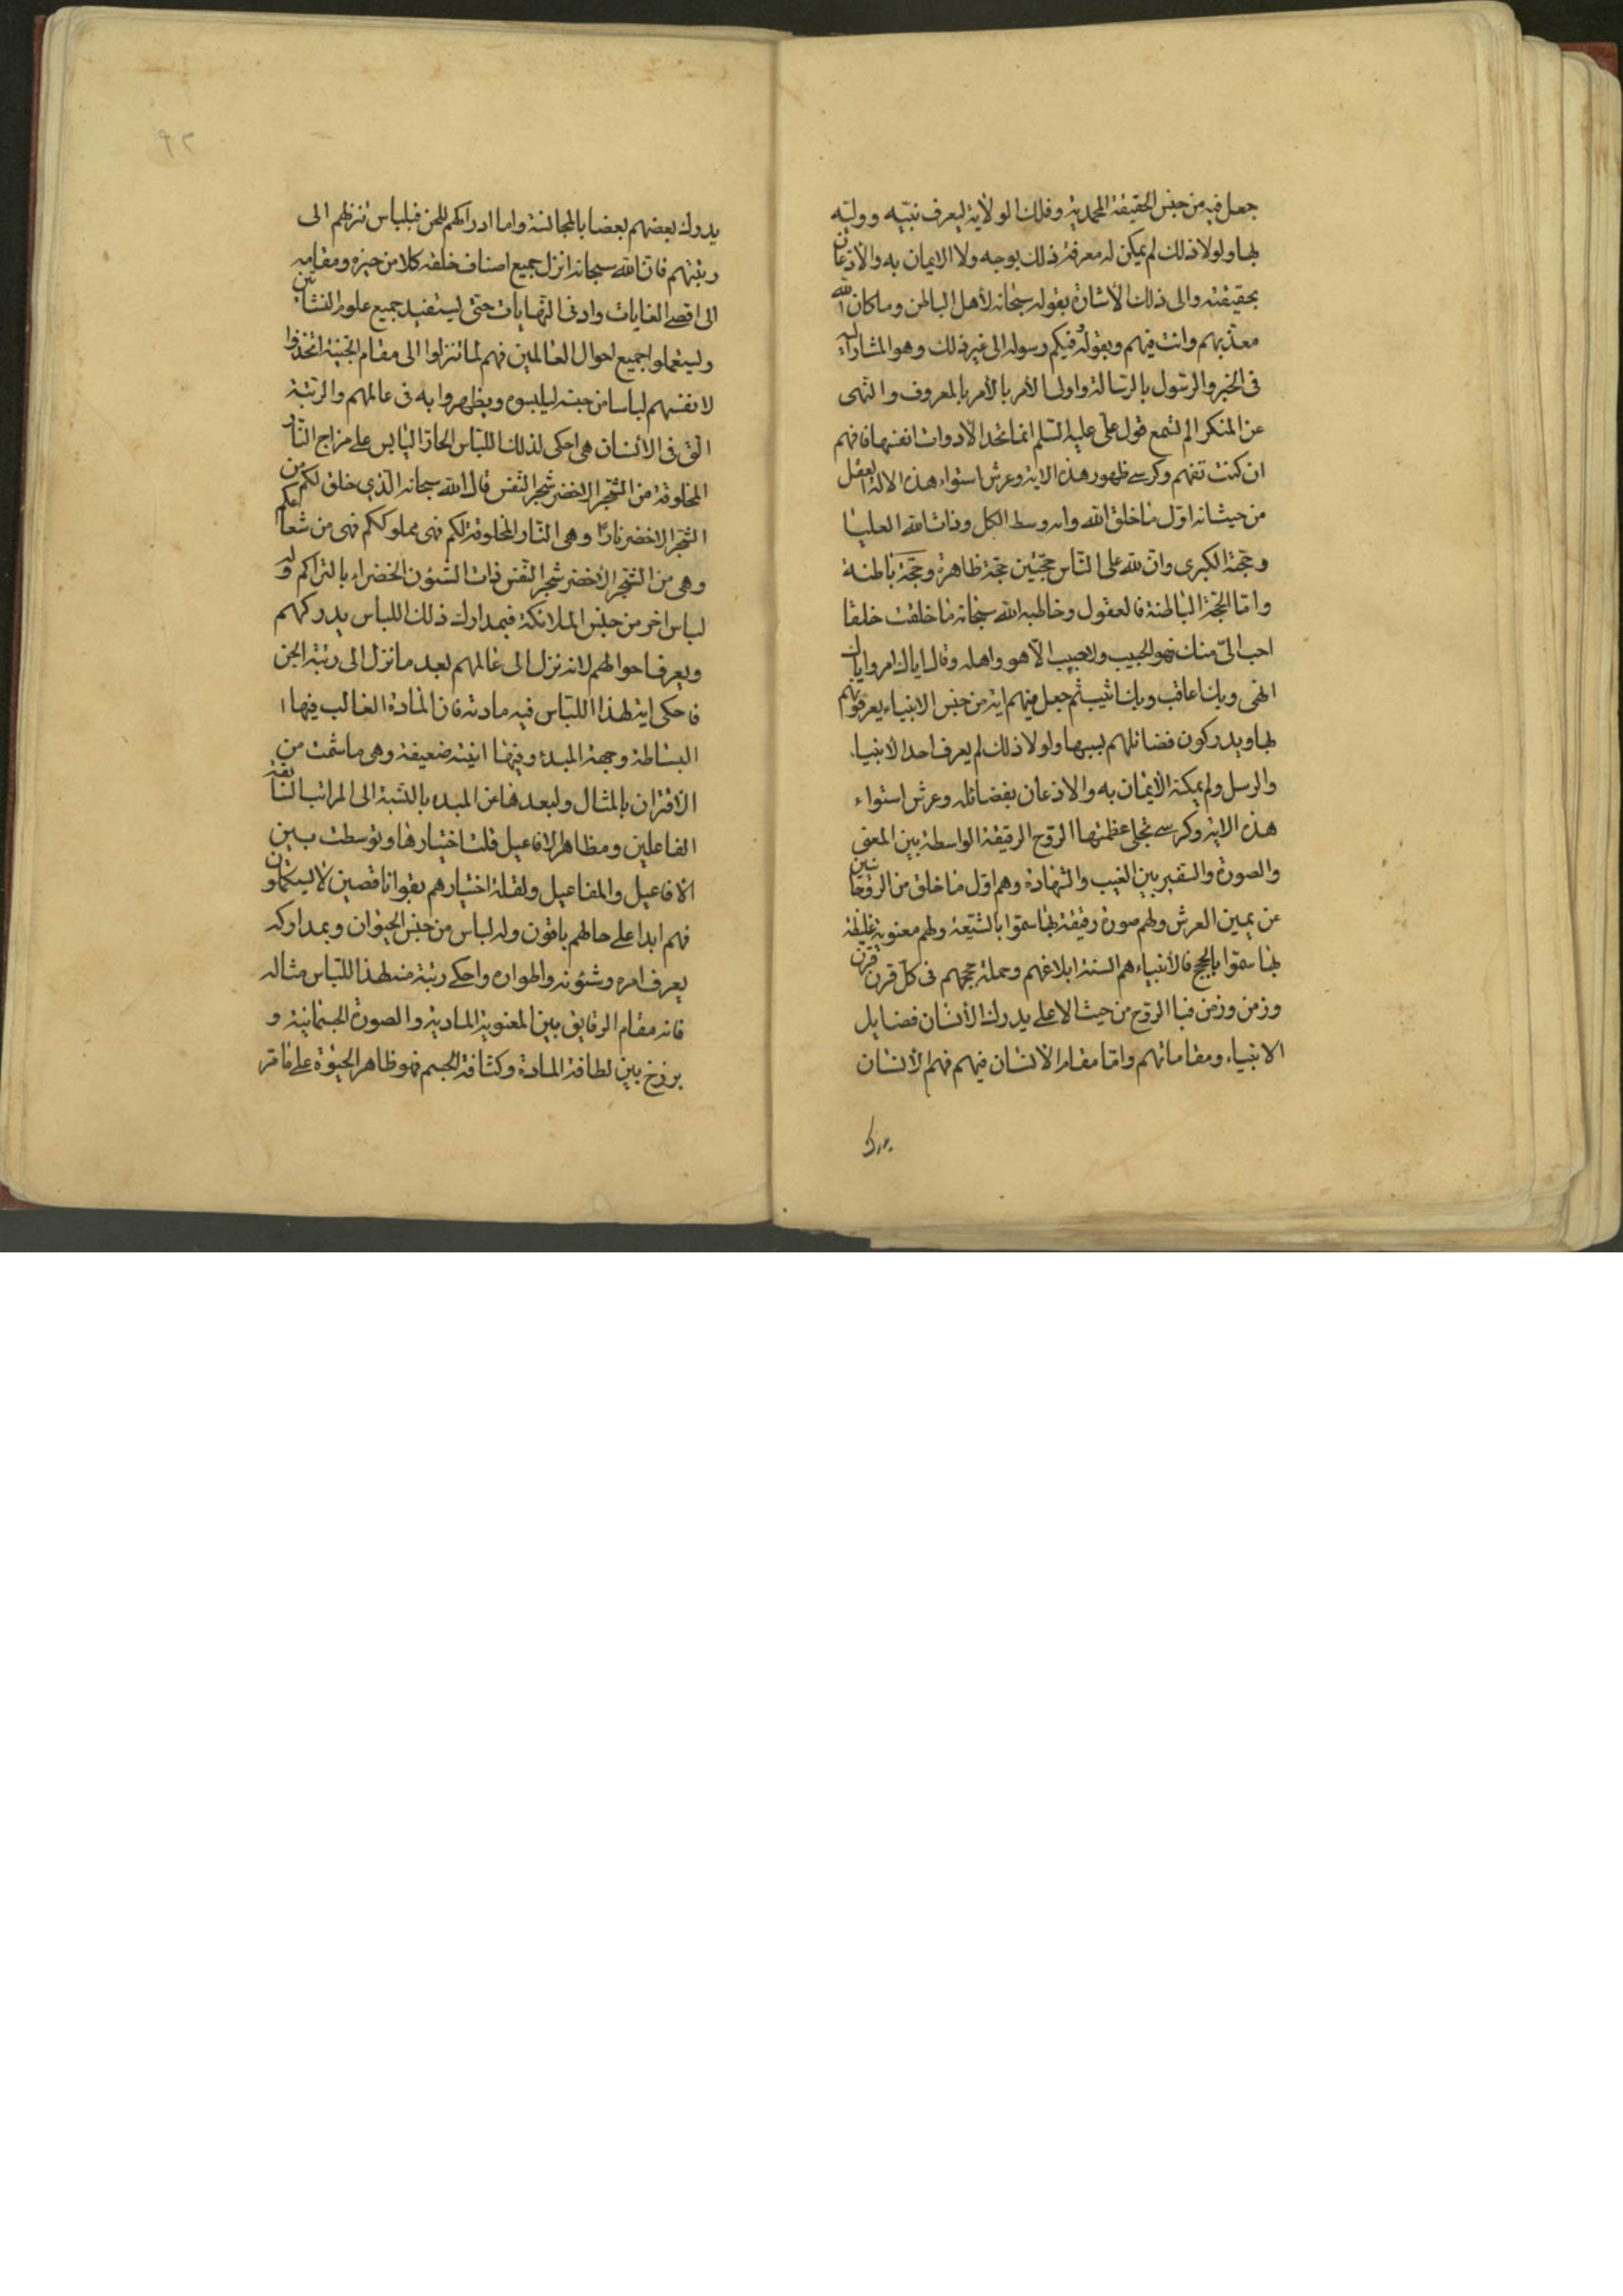 جعل فيه من جنس الحقيقة المحمدية وفلك الولاية ليعرف نبيه ووليه
بها ولولا ذلك لم يمكن له معرفة ذلك بوجه ولا الايمان به والاذعان
بحقيقته والى ذلك الاشارة بقوله سبحانه لاهل الباطن وما كان الله
معذبهم وانت فيهم وبقوله فيكم رسوله الى غير ذلك وهو المشار اليه
فى الخبر والرسول بالرسالة واولى الامر بالامر بالمعروف والنهى
عن المنكر الم تسمع قول على عليه السلم انما تحد الادوات انفسها فافهم
ان كنت تفهم وكرسى ظهور هذه الاية وعرش استواء هذه الالة العقل
من حيث انه اول ما خلق الله وانه وسط الكل وذات الله العليا
وحجته الكبرى وان لله على الناس حجتين حجة ظاهرة وحجة باطنة
واما الحجة الباطنة فالعقول وخاطبه الله سبحانه ما خلقت خلقا
احب الىّ منك فهو الحبيب ولا حبيب الا هو واهله وقال اياك امر واياك
انهى وبك اعاقب وبك اثيب ثم جعل فيهم اية من جنس الانبياء يعرفونهم
بها ويدركون فضائلهم بسببها ولولا ذلك لم يعرف احد الانبياء
والرسل ولم يمكنه الايمان به والاذعان بفضائله وعرش استواء
هذه الاية وكرسى تجلى عظمتها الروح الرقيقة الواسطة بين المعنى
والصورة والسفير بين الغيب والشهادة وهم اول ما خلق من الروحانيين
عن يمين العرش ولهم صورة رقيقة بها سموا بالشيعة ولهم معنوية غليظة
بها سموا بالحجج فالانبياء هم السنة ابلاغهم وحملة حججهم فى كل قرن قرن
وزمن وزمن فبا الروح من حيث الاعلى يدرك الانسان فضايل
الانبياء ومقاماتهم واما مقام الانسان فيهم فهم الانسان
يدرك
٩٢
يدرك بعضهم بعضا بالمجانسة واما ادراكهم للجن فبلباس تنزلهم الى
رتبتهم فان الله سبحانه انزل جميع اصناف خلقه كلا من حيزه ومقامه
الى اقصى الغايات وادنى النهايات حتى ليستفيد جميع علوم النشأتين
وليستعملوا جميع احوال العالمين فهم لما تنزلوا الى مقام الجنية اتخذوا
لانفسهم لباسا من جنسه ليلبسوه ويظهروا به فى عالمهم والرتبة
التى فى الانسان هى احكى لذلك اللباس الحار اليابس على مزاج النار
المخلوقة من الشجر الاخضر شجر النفس قال الله سبحانه الذى خلق لكم من
الشجر الاخضر نارا وهى النار المخلوقة لكم فهى مملوككم فهى من شعاعكم
وهى من الشجر الاخضر شجر النفس ذات الشئون الخضراء بالتراكم وله
لباس اخر من جنس الملائكة فبمدارك ذلك اللباس يدركهم
ويعرف احوالهم لانه نزل الى عالمهم بعد ما نزل الى رتبة الجن
فاحكى اية لهذا اللباس فيه مادته فان المادة الغالب فيها ا
البساطة وجهة المبدء وفيها انية ضعيفة وهى ما شمت من
الاقتران بالمثال ولبعدها عن المبدء بالنسبة الى المراتب السابقة
الفاعلين ومظاهر الافاعيل قلت اختيارها وتوسطت بين
الافاعيل والمفاعيل ولقلة اختيارهم بقوا ناقصين لا يستكملون
فهم ابدا على حالهم باقون وله لباس من جنس الحيوان وبمداركه
يعرف امره وشئونه واطواره واحكى رتبة منه لهذا اللباس مثاله
فانه مقام الرقايق بين المعنوية المادية والصورة الجسمانية و
برزخ بين لطافة المادة وكثافة الجسم فهو ظاهر الحيوة على ما قر